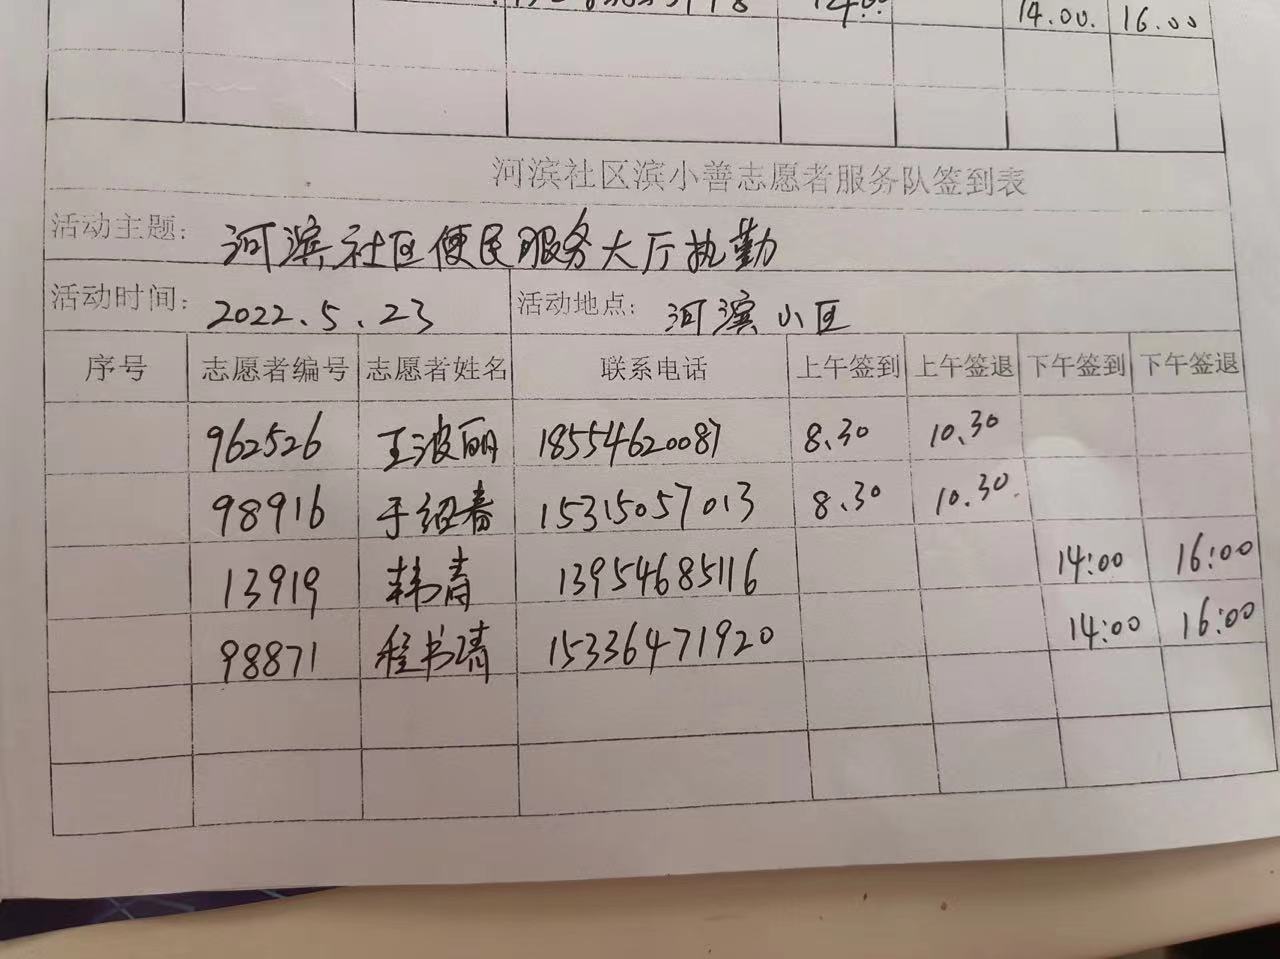 14:00 14.00. 16.00
河滨社区滨小善志愿者服务队签到表
活动主题: 河滨社区便民服务大厅执勤
活动时间: 2022.5.23 活动地点: 河滨小区
序号 志愿者编号 志愿者姓名 联系电话 上午签到 上午签退 下午签到 下午签退
962526 王波丽 18554620087 8.30 10.30
98916 于绍春 15315057013 8.30 10.30.
13919 韩青 13954685116 14:00 16:00
98871 程书靖 15336471920 14:00 16:00